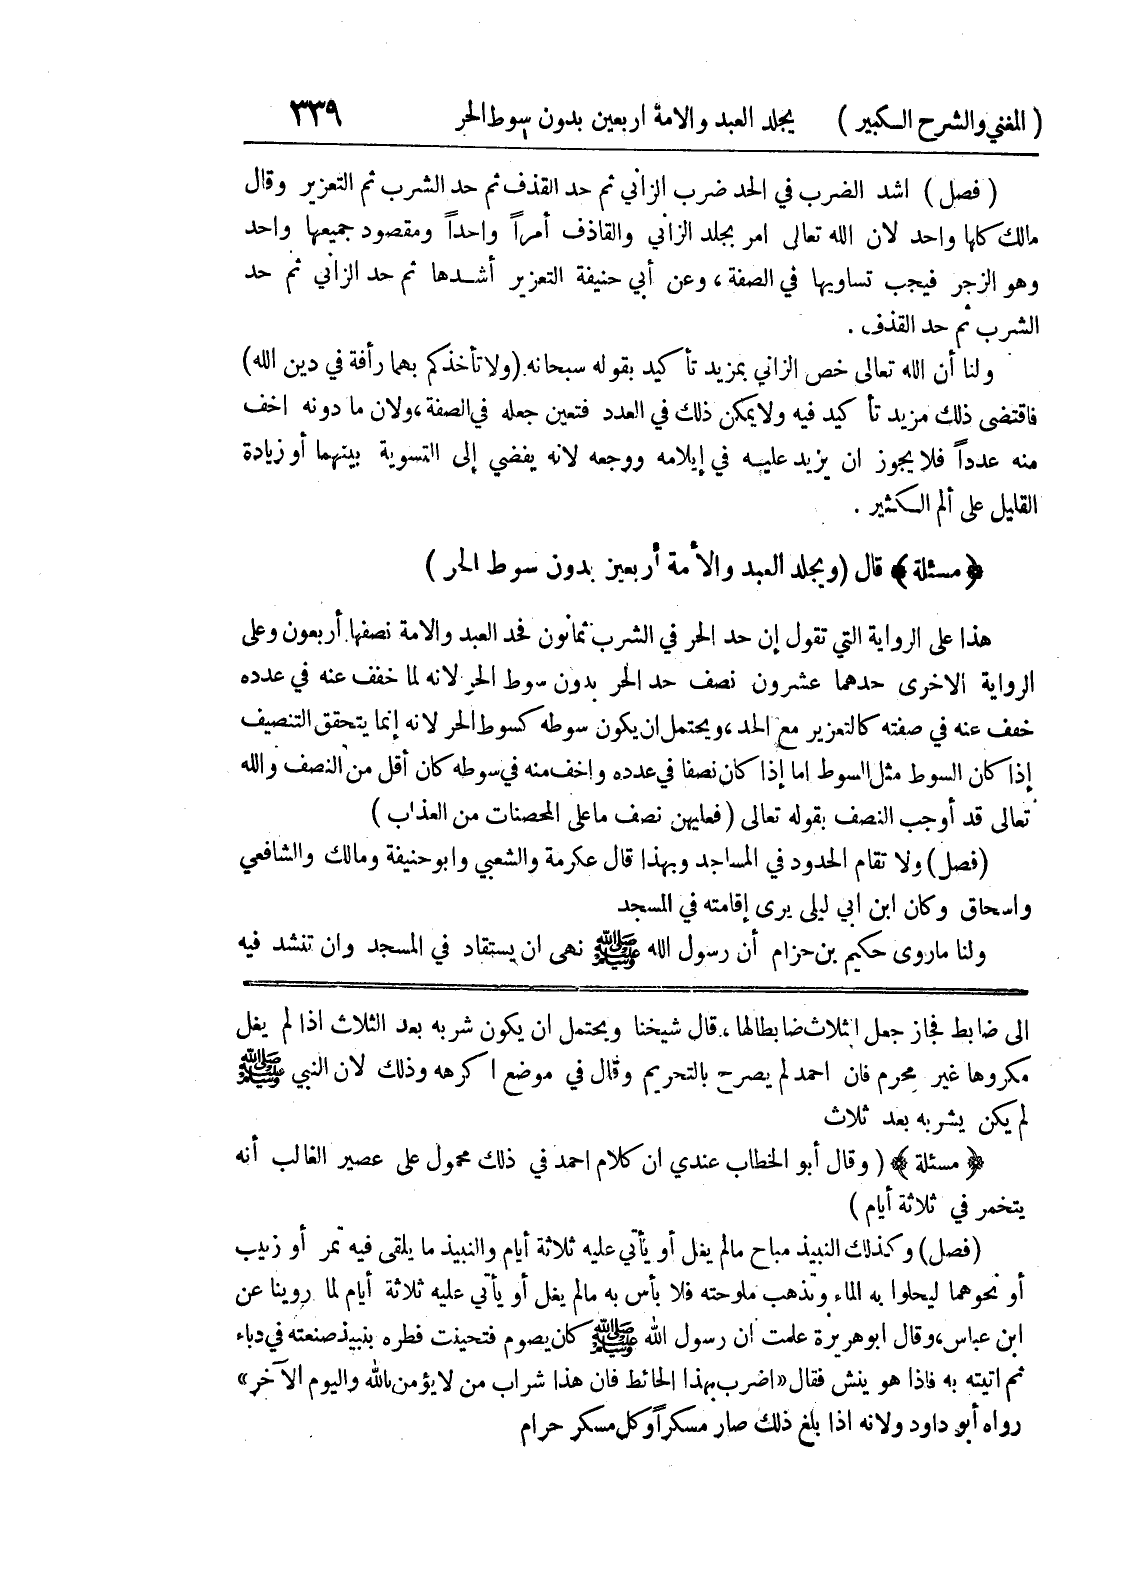 ( المغني والشرح الكبير )     يجلد العبد والامة اربعين بدون سوط الحر     ٣٣٩
( فصل ) اشد الضرب في الحد ضرب الزاني ثم حد القذف ثم حد الشرب ثم التعزير وقال
مالك كلها واحد لان الله تعالى امر بجلد الزاني والقاذف أمراً واحداً ومقصود جميعها واحد
وهو الزجر فيجب تساويها في الصفة ، وعن أبي حنيفة التعزير أشدها ثم حد الزاني ثم حد
الشرب ثم حد القذف .
ولنا أن الله تعالى خص الزاني بمزيد تأكيد بقوله سبحانه (ولا تأخذكم بهما رأفة في دين الله)
فاقتضى ذلك مزيد تأكيد فيه ولا يمكن ذلك في العدد فتعين جعله في الصفة ، ولان ما دونه اخف
منه عدداً فلا يجوز ان يزيد عليه في إيلامه ووجعه لانه يفضي إلى التسوية بينهما أو زيادة
القليل على ألم الكثير .
﴿ مسئلة ﴾ قال ( ويجلد العبد والأمة أربعين بدون سوط الحر )
هذا على الرواية التي تقول إن حد الحر في الشرب ثمانون فحد العبد والامة نصفها أربعون وعلى
الرواية الاخرى حدهما عشرون نصف حد الحر بدون سوط الحر لانه لما خفف عنه في عدده
خفف عنه في صفته كالتعزير مع الحد ، ويحتمل ان يكون سوطه كسوط الحر لانه إنما يتحقق التنصيف
إذا كان السوط مثل السوط اما إذا كان نصفا في عدده واخف منه في سوطه كان أقل من النصف والله
تعالى قد أوجب النصف بقوله تعالى ( فعليهن نصف ما على المحصنات من العذاب )
( فصل ) ولا تقام الحدود في المساجد وبهذا قال عكرمة والشعبي وابو حنيفة ومالك والشافعي
واسحاق وكان ابن ابي ليلى يرى إقامته في المسجد
ولنا ما روى حكيم بن حزام أن رسول الله ﷺ نهى ان يستقاد في المسجد وان تنشد فيه
الى ضابط فجاز جعل الثلاث ضابطا لها ، قال شيخنا ويحتمل ان يكون شربه بعد الثلاث اذا لم يغل
مكروها غير محرم فان احمد لم يصرح بالتحريم وقال في موضع اكرهه وذلك لان النبي ﷺ
لم يكن يشربه بعد ثلاث
﴿ مسئلة ﴾ ( وقال أبو الخطاب عندي ان كلام احمد في ذلك محمول على عصير الغالب أنه
يتخمر في ثلاثة أيام )
( فصل ) وكذلك النبيذ مباح مالم يغل أو يأتي عليه ثلاثة أيام والنبيذ ما يلقى فيه تمر أو زبيب
أو نحوهما ليحلوا به الماء وتذهب ملوحته فلا بأس به مالم يغل أو يأتي عليه ثلاثة أيام لما روينا عن
ابن عباس ، وقال ابو هريرة علمت ان رسول الله ﷺ كان يصوم فتحينت فطره بنبيذ صنعته في دباء
ثم اتيته به فاذا هو ينش فقال « اضرب بهذا الحائط فان هذا شراب من لا يؤمن بالله واليوم الآخر »
رواه أبو داود ولانه اذا بلغ ذلك صار مسكراً وكل مسكر حرام